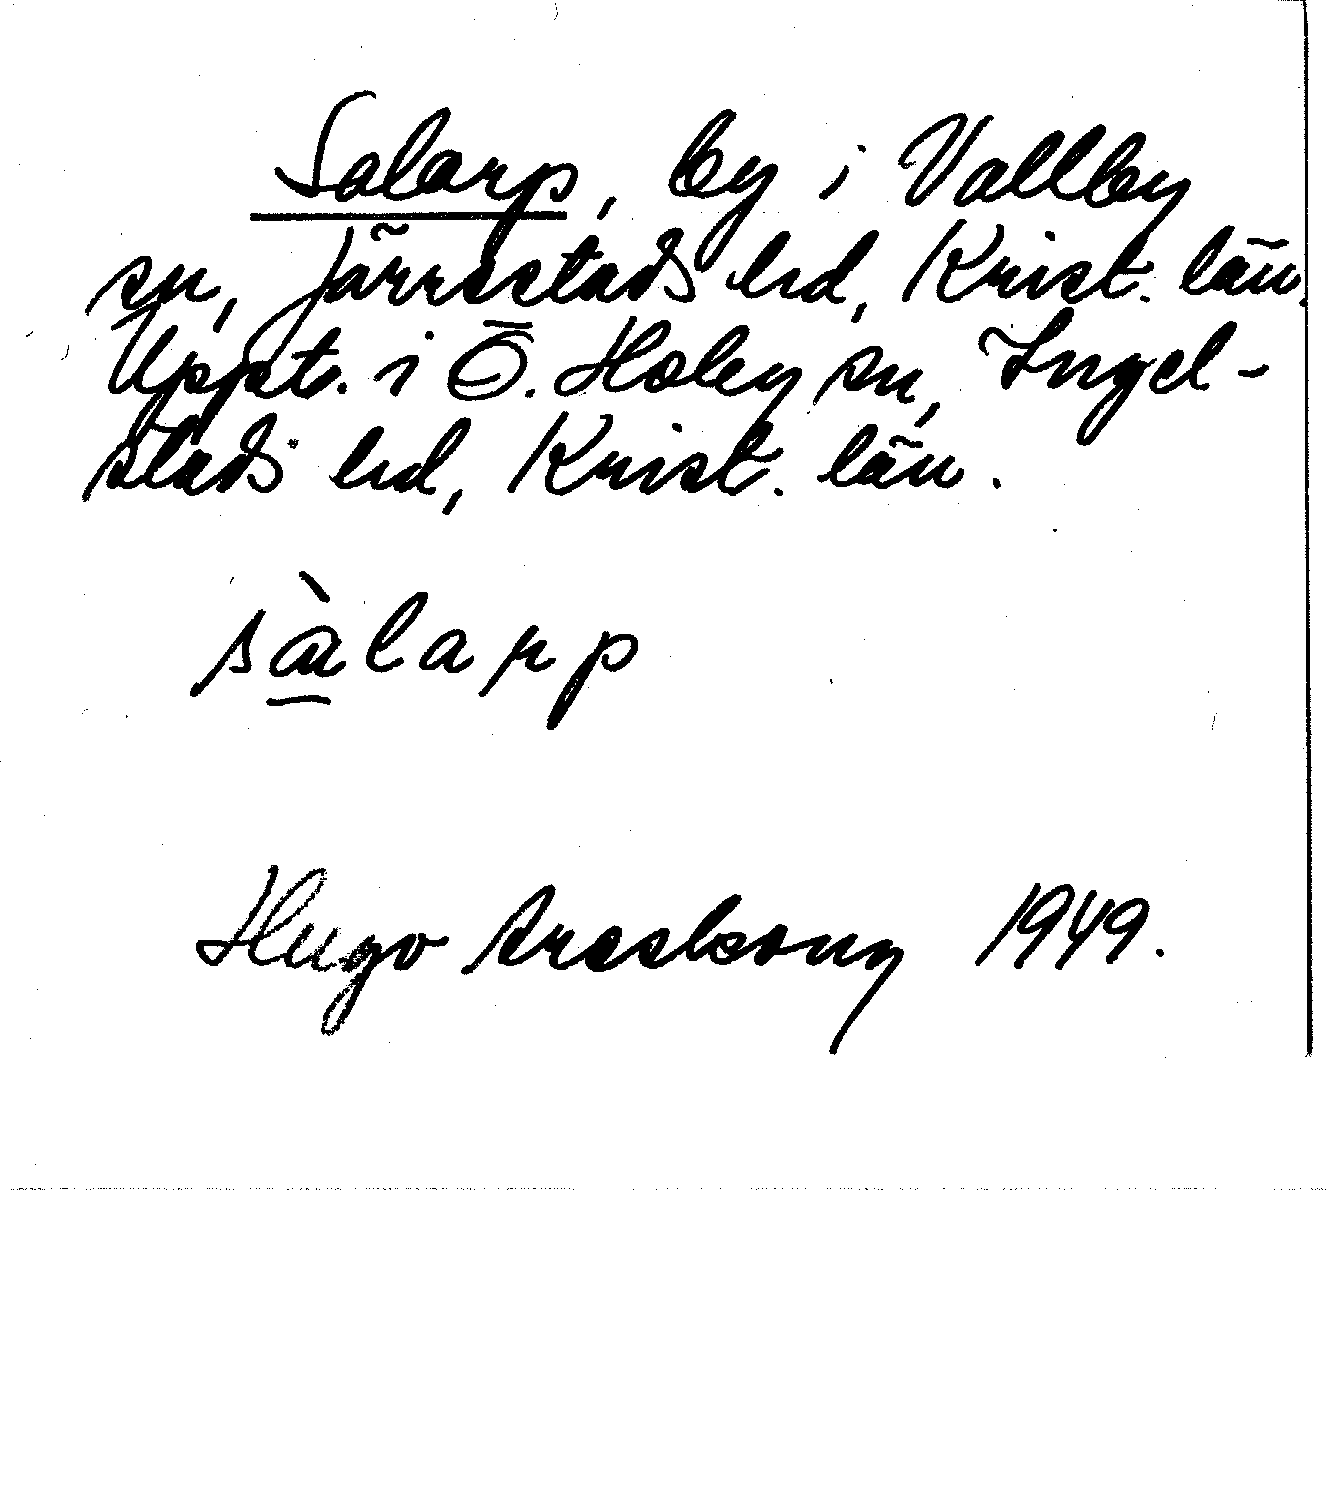 Salarp, by i Vallby
sn, Järrestads hd, Krist. län.
Uppt. i Ö. Hoby sn, Ingel-
stads hd, Krist. län.
sàlarp
Hugo Areskoug 1949.